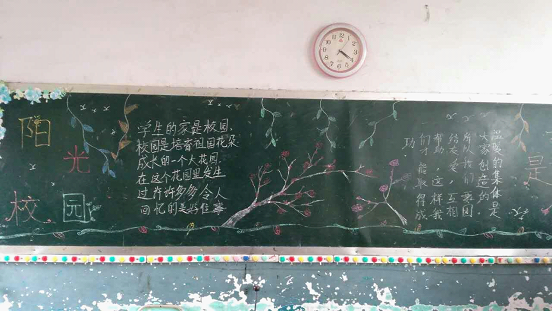 阳
光
校
园
学生的家是校园,
校园是培育祖国花朵
成长的一个大花园,
在这个花园里发生
过许许多多令人
回忆的美好往事
温暖的集体是
大家创造的,
所以我们要团
结友爱,互相
帮助,这样我
们才能取得成
功
是